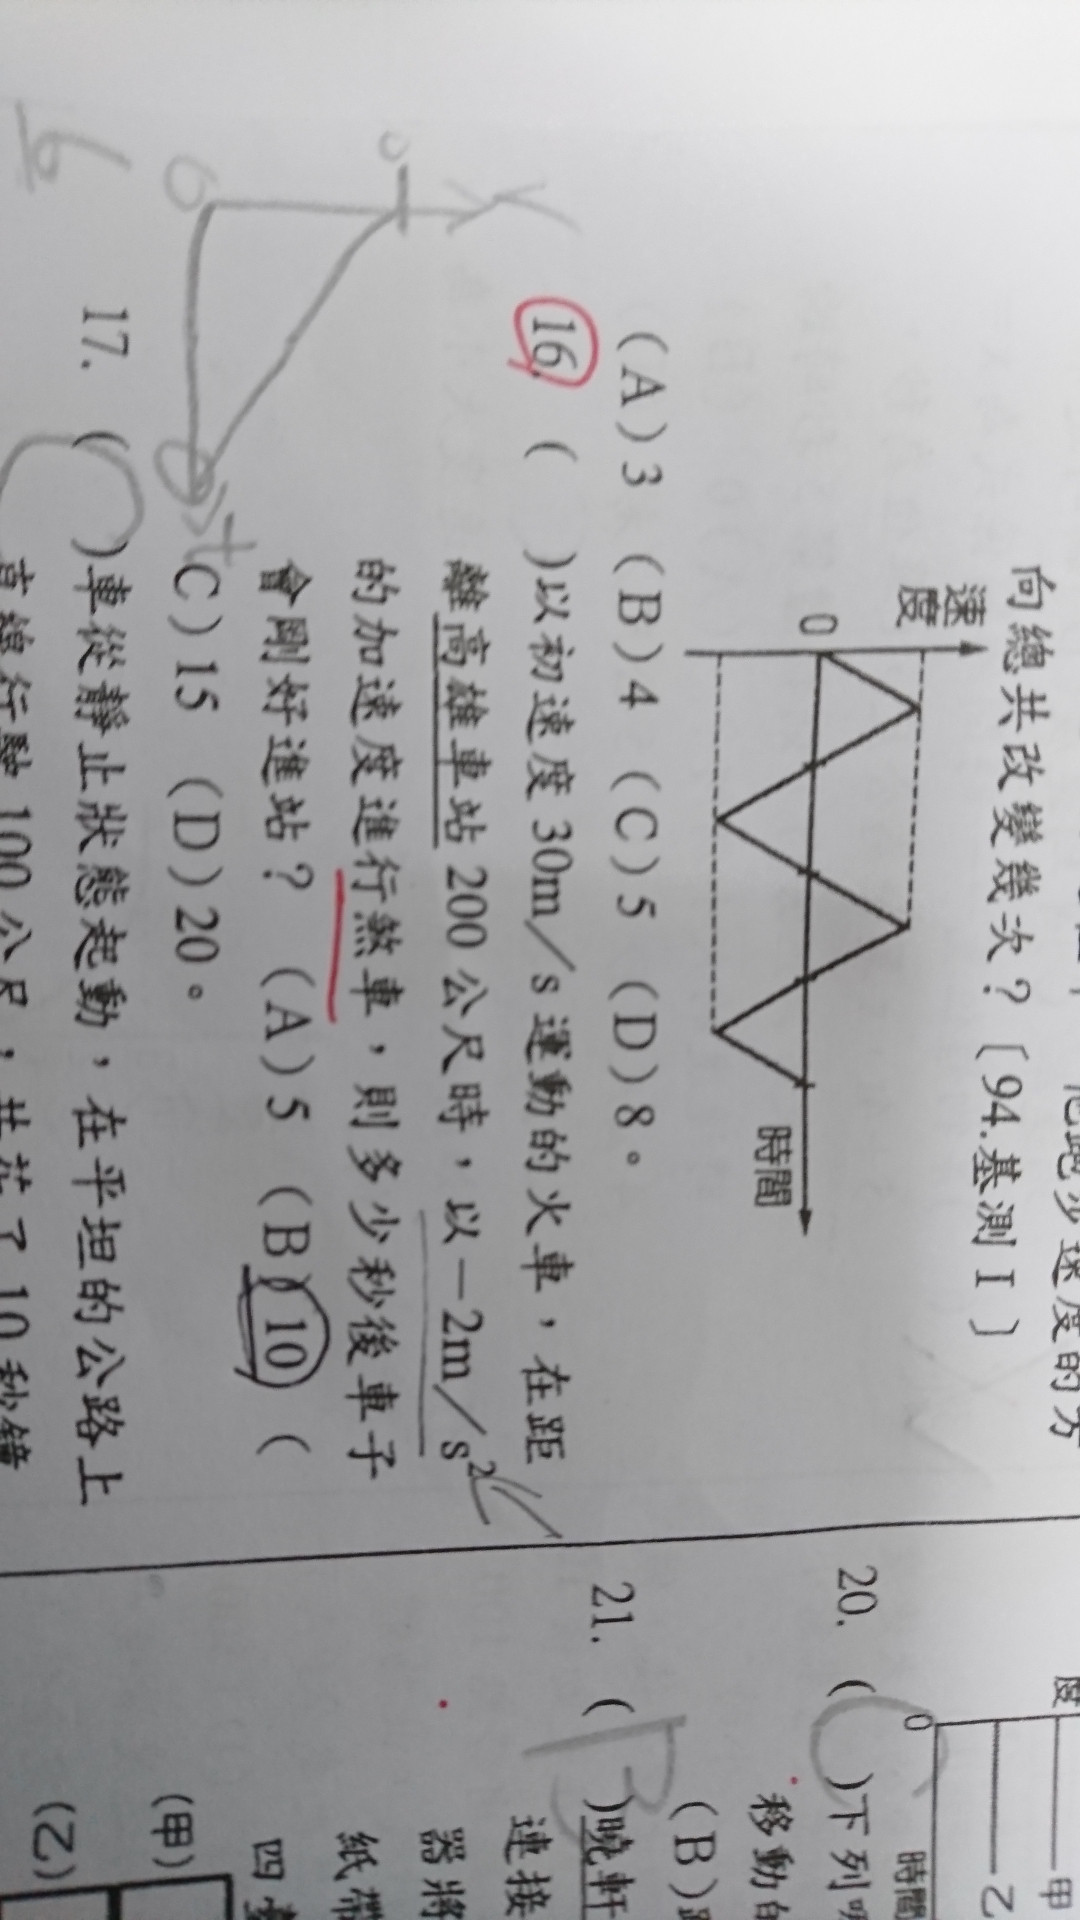 向總共改變幾次？〔94.基測Ⅰ〕
速度
0
時間
(A)3 (B)4 (C)5 (D)8。
16. ( )以初速度 30m/s 運動的火車，在距
離高雄車站 200 公尺時，以－2m/s²
的加速度進行煞車，則多少秒後車子
會剛好進站？ (A)5 (B)10 (
C)15 (D)20。
17. ( )車從靜止狀態起動，在平坦的公路上
直線行駛 100 公尺，共花了 10 秒鐘
t
6
度
0
甲
乙
時間
20. (C)下列
移動的
(B)
21. (B)曉軒
連接
器將
紙帶
四
(甲)
(乙)